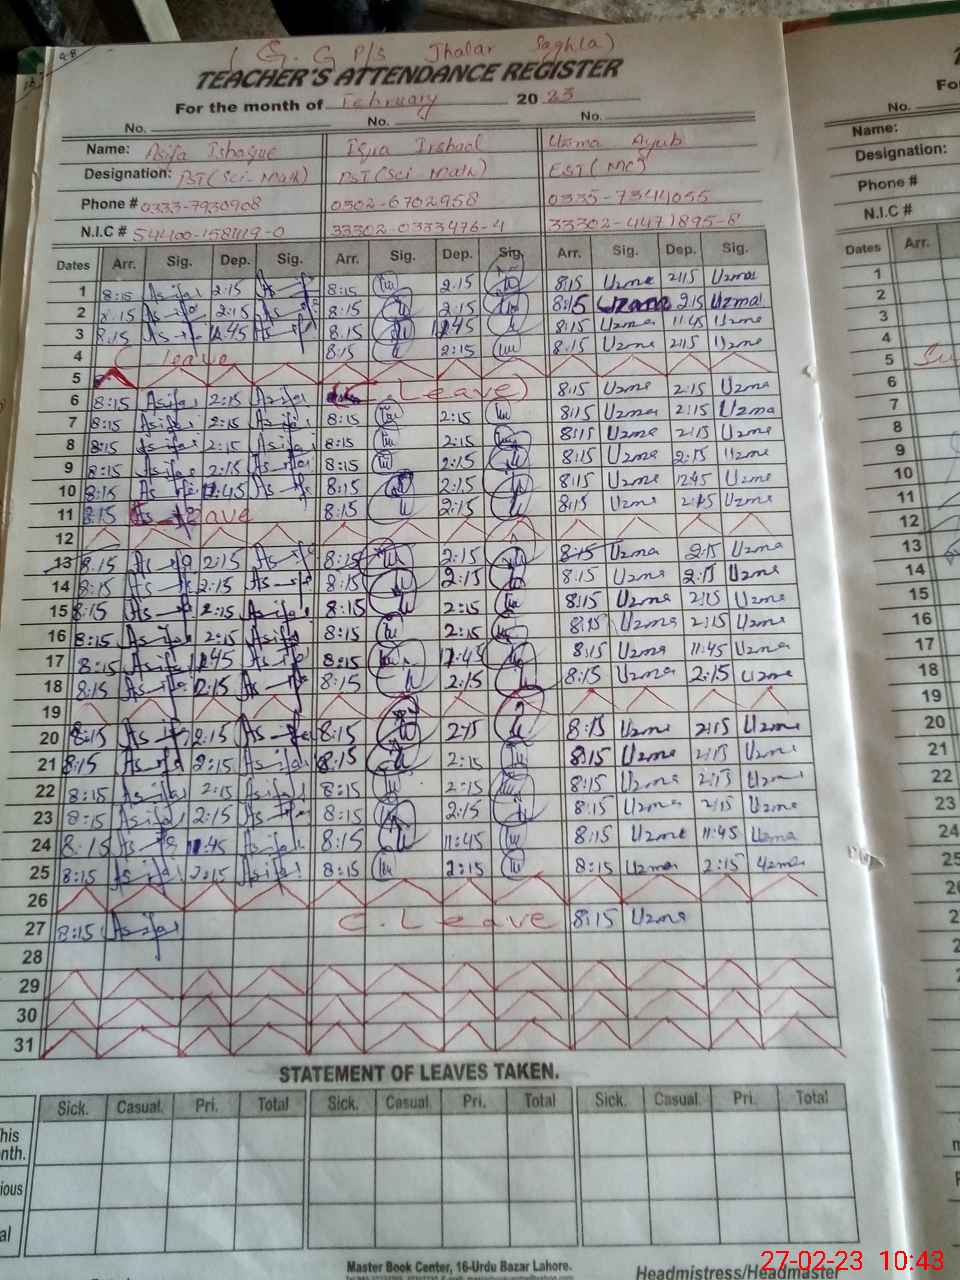 ( G. G P/S Jhalar Saghla)
TEACHER'S ATTENDANCE REGISTER
For the month of February 20 23
No. No. No.
Name: Asifa Ishaque Iqra Irshad Uzma Ayub
Designation: PST(Sci-Math) PST(Sci-Math) EST(MC)
Phone # 0333-7930908 0302-6702958 0335-7344055
N.I.C # 33302-0333476-4 33302-4471895-8
Dates Arr. Sig. Dep. Sig. Arr. Sig. Dep. Sig. Arr. Sig. Dep. Sig.
1 8:15 Asifa 2:15 Asifa 8:15 2:15 8:15 Uzma 2:15 Uzma
2 8:15 Asifa 2:15 Asifa 8:15 2:15 8:15 Uzma 2:15 Uzma
3 8:15 Asifa 11:45 Asifa 8:15 11:45 8:15 Uzma 11:45 Uzma
4 C leave 8:15 2:15 8:15 Uzma 2:15 Uzma
5
6 8:15 Asifa 2:15 Asifa C Leave) 8:15 Uzma 2:15 Uzma
7 8:15 Asifa 2:15 Asifa 8:15 2:15 8:15 Uzma 2:15 Uzma
8 8:15 Asifa 2:15 Asifa 8:15 2:15 8:15 Uzma 2:15 Uzma
9 8:15 Asifa 2:15 Asifa 8:15 2:15 8:15 Uzma 2:15 Uzma
10 8:15 Asifa 12:45 Asifa 8:15 2:15 8:15 Uzma 12:45 Uzma
11 8:15 8:15 2:15 8:15 Uzma 2:15 Uzma
12
13 8:15 Asifa 2:15 Asifa 8:15 2:15 8:15 Uzma 2:15 Uzma
14 8:15 Asifa 2:15 Asifa 8:15 2:15 8:15 Uzma 2:15 Uzma
15 8:15 Asifa 2:15 Asifa 8:15 2:15 8:15 Uzma 2:15 Uzma
16 8:15 Asifa 2:15 Asifa 8:15 2:15 8:15 Uzma 2:15 Uzma
17 8:15 Asifa 11:45 Asifa 8:15 11:45 8:15 Uzma 11:45 Uzma
18 8:15 Asifa 2:15 Asifa 8:15 2:15 8:15 Uzma 2:15 Uzma
19
20 8:15 Asifa 2:15 Asifa 8:15 2:15 8:15 Uzma 2:15 Uzma
21 8:15 Asifa 2:15 Asifa 8:15 2:15 8:15 Uzma 2:15 Uzma
22 8:15 Asifa 2:15 Asifa 8:15 2:15 8:15 Uzma 2:15 Uzma
23 8:15 Asifa 2:15 Asifa 8:15 2:15 8:15 Uzma 2:15 Uzma
24 8:15 Asifa 11:45 Asifa 8:15 11:45 8:15 Uzma 11:45 Uzma
25 8:15 Asifa 2:15 Asifa 8:15 2:15 8:15 Uzma 2:15 Uzma
26
27 8:15 Asifa C. Leave 8:15 Uzma
28
29
30
31
STATEMENT OF LEAVES TAKEN.
Sick. Casual. Pri. Total Sick. Casual. Pri. Total Sick. Casual. Pri. Total
his
nth.
ious
al
Master Book Center, 16-Urdu Bazar Lahore.
Headmistress/Headmaster
27-02-23 10:43
No.
Name:
Designation:
Phone #
N.I.C #
Dates Arr.
1
2
3
4
5
6
7
8
9
10
11
12
13
14
15
16
17
18
19
20
21
22
23
24
25